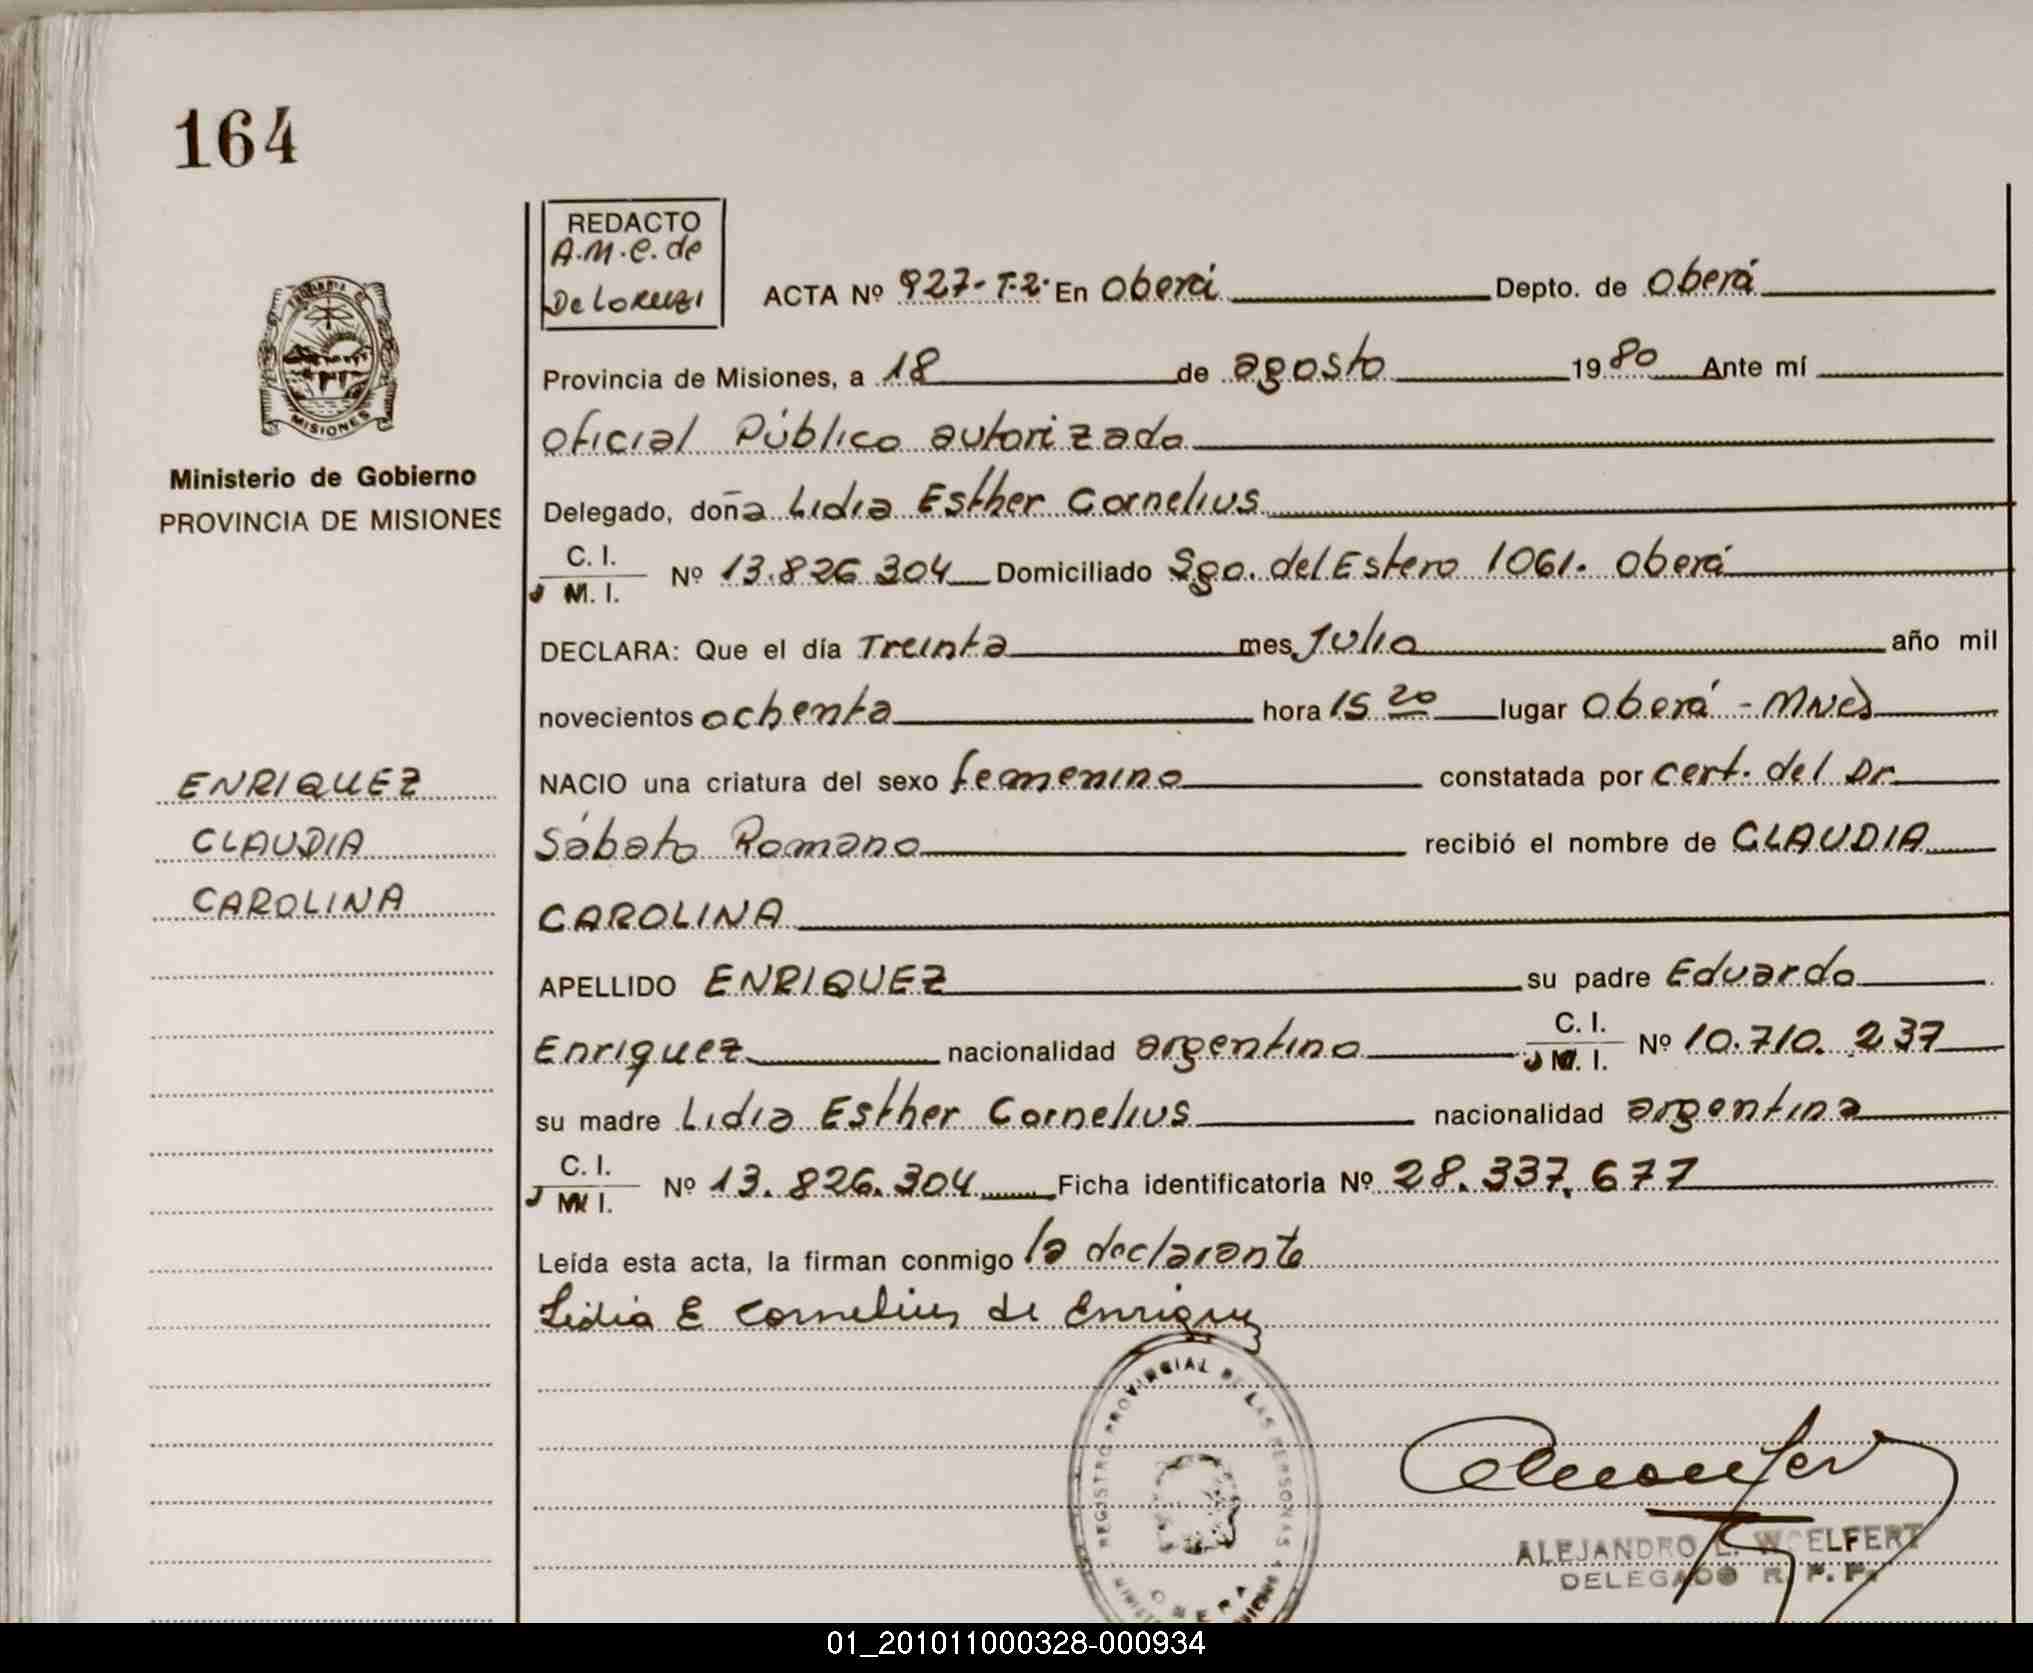 164
REDACTO
A.M.C. de
De Lorenzi
ACTA Nº 927-T-2- En Oberá Depto. de Oberá
Provincia de Misiones, a 18 de agosto 1980 Ante mí
Oficial Público autorizado
Ministerio de Gobierno
PROVINCIA DE MISIONES
Delegado, doña Lidia Esther Cornelius
C. I.
M. I. Nº 13.826.304 Domiciliado Sgo. del Estero 1061. Oberá
DECLARA: Que el día Treinta mes Julio año mil
novecientos ochenta hora 15 20 lugar Oberá - Mnes
ENRIQUEZ
CLAUDIA
CAROLINA
NACIO una criatura del sexo femenino constatada por cert. del Dr.
Sábato Romano recibió el nombre de CLAUDIA
CAROLINA
APELLIDO ENRIQUEZ su padre Eduardo
Enriquez nacionalidad argentino C. I. M. I. Nº 10.710.237
su madre Lidia Esther Cornelius nacionalidad argentina
C. I.
M. I. Nº 13.826.304 Ficha identificatoria Nº 28.337.677
Leída esta acta, la firman conmigo la declarante
Lidia E Cornelius de Enriquez
REGISTRO PROVINCIAL DE LAS PERSONAS
OBERA
MISIONES
ALEJANDRO L. WOELFERT
DELEGADO R. P. P.
01_201011000328-000934